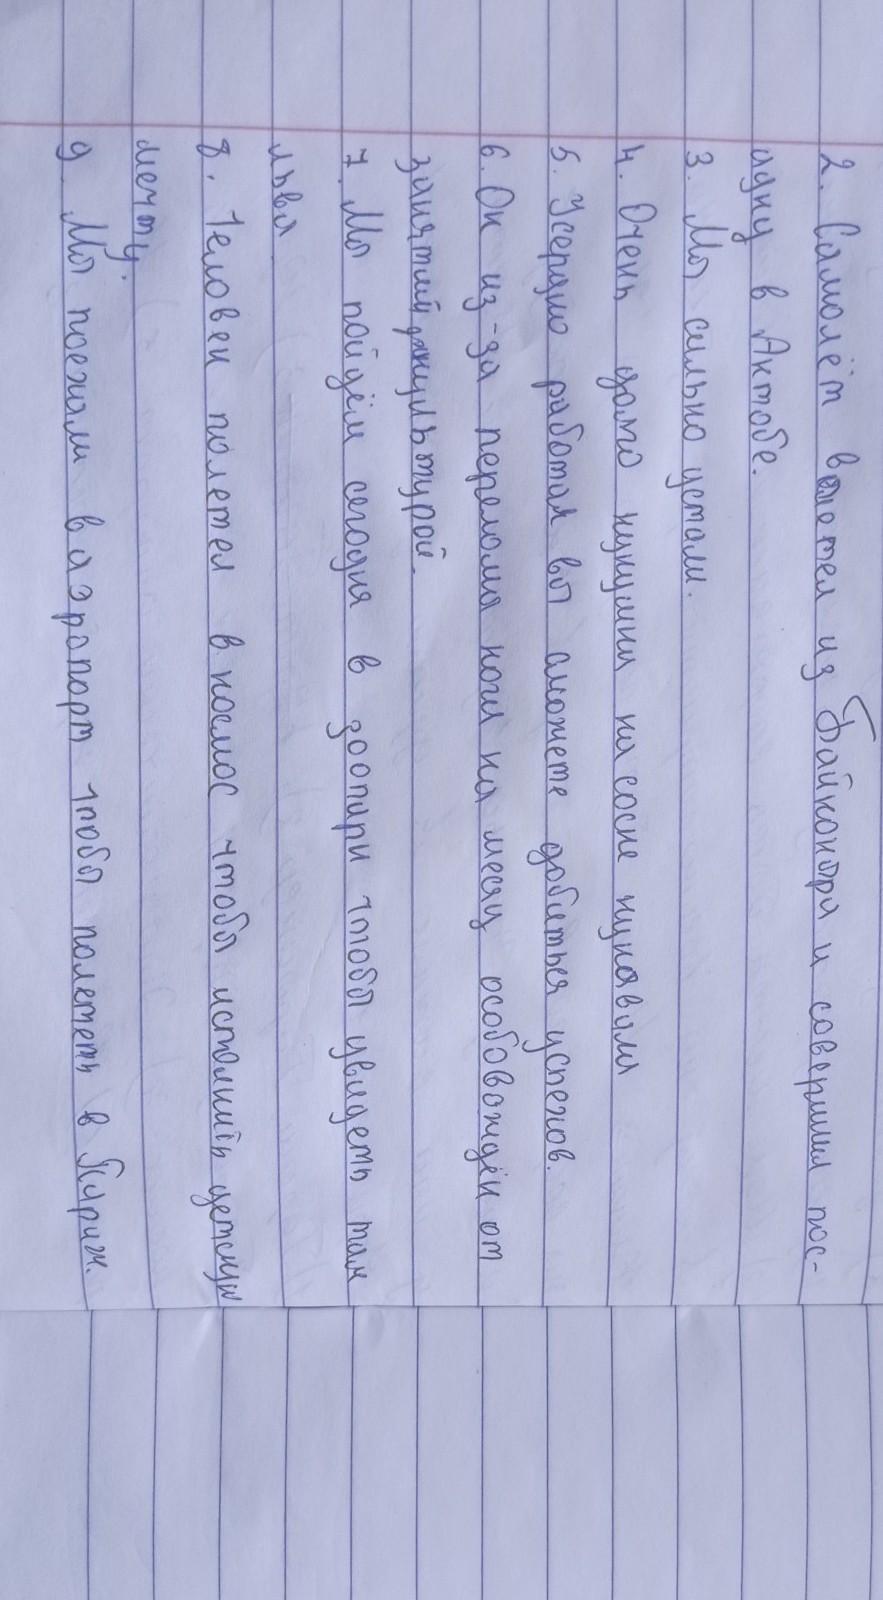 2. Самолёт вылетел из Байконура и совершил пос-
адку в Актобе.
3. Мы сильно устали.
4. Очень долго кукушка на сосне куковала
5. Усердно работая вы сможете добиться успехов.
6. Он из-за перелома ноги на месяц особовождён от
занятий физкультурой.
7. Мы пойдём сегодня в зоопарк чтобы увидеть там
льва.
8. Человек полетел в космос чтобы исполнить детскую
мечту.
9. Мы поехали в аэропорт чтобы полететь в Париж.